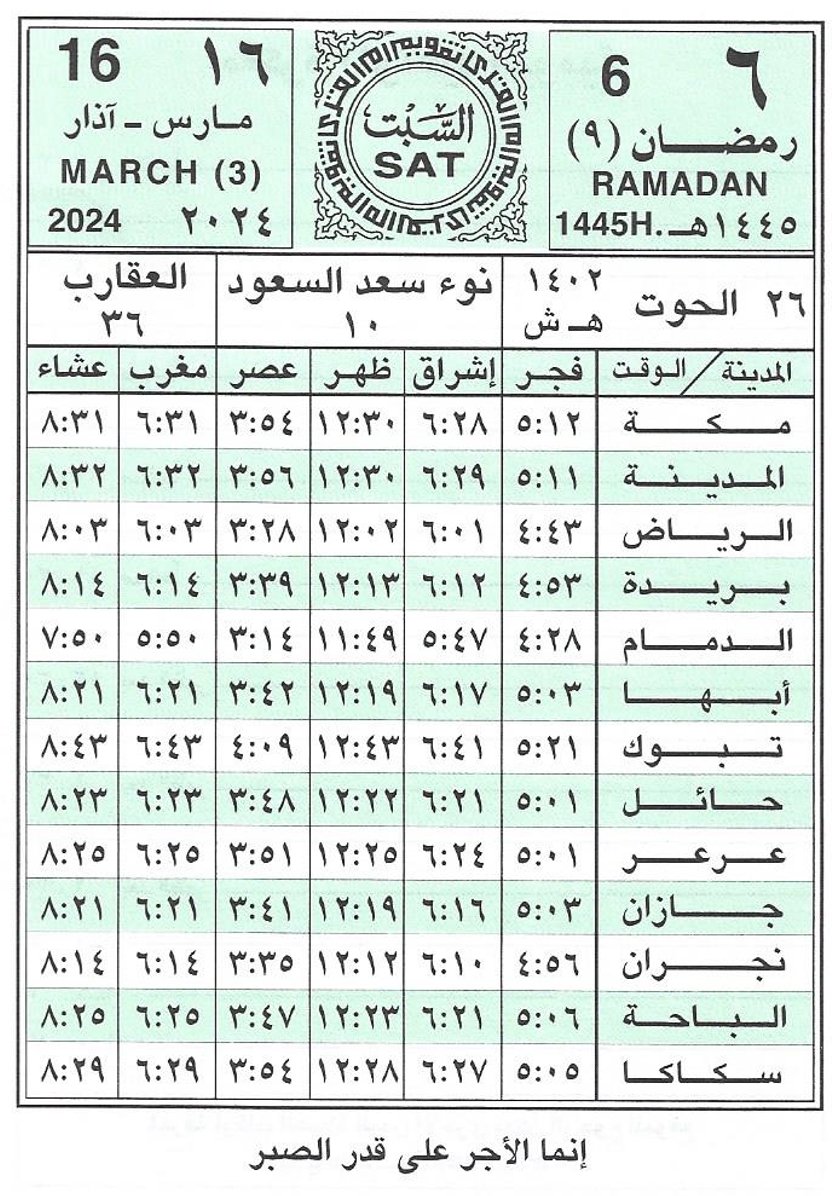 ٦ 6
رمضان (٩)
RAMADAN
١٤٤٥هـ. 1445H
تقويم أم القرى تقويم أم القرى
السَّبْت
SAT
١٦ 16
مارس - آذار
MARCH (3)
2024 ٢٠٢٤
٢٦ الحوت ١٤٠٢ هـ ش
نوء سعد السعود ١٠
العقارب ٣٦
المدينة / الوقت فجر إشراق ظهر عصر مغرب عشاء
مكة ٥:١٢ ٦:٢٨ ١٢:٣٠ ٣:٥٤ ٦:٣١ ٨:٣١
المدينة ٥:١١ ٦:٢٩ ١٢:٣٠ ٣:٥٦ ٦:٣٢ ٨:٣٢
الرياض ٤:٤٣ ٦:٠١ ١٢:٠٢ ٣:٢٨ ٦:٠٣ ٨:٠٣
بريدة ٤:٥٣ ٦:١٢ ١٢:١٣ ٣:٣٩ ٦:١٤ ٨:١٤
الدمام ٤:٢٨ ٥:٤٧ ١١:٤٩ ٣:١٤ ٥:٥٠ ٧:٥٠
أبها ٥:٠٣ ٦:١٧ ١٢:١٩ ٣:٤٢ ٦:٢١ ٨:٢١
تبوك ٥:٢١ ٦:٤١ ١٢:٤٣ ٤:٠٩ ٦:٤٣ ٨:٤٣
حائل ٥:٠١ ٦:٢١ ١٢:٢٢ ٣:٤٨ ٦:٢٣ ٨:٢٣
عرعر ٥:٠١ ٦:٢٤ ١٢:٢٥ ٣:٥١ ٦:٢٥ ٨:٢٥
جازان ٥:٠٣ ٦:١٦ ١٢:١٩ ٣:٤١ ٦:٢١ ٨:٢١
نجران ٤:٥٦ ٦:١٠ ١٢:١٢ ٣:٣٥ ٦:١٤ ٨:١٤
الباحة ٥:٠٦ ٦:٢١ ١٢:٢٣ ٣:٤٧ ٦:٢٥ ٨:٢٥
سكاكا ٥:٠٥ ٦:٢٧ ١٢:٢٨ ٣:٥٤ ٦:٢٩ ٨:٢٩
إنما الأجر على قدر الصبر